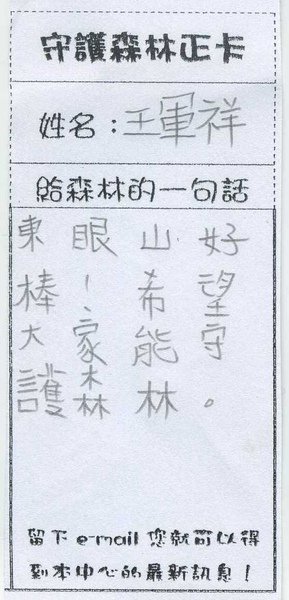 守護森林正卡
姓名：王軍祥
給森林的一句話
東眼山好
棒！、希望
大家能守
護森林。
留下e-mail您就可以得
到本中心的最新訊息！